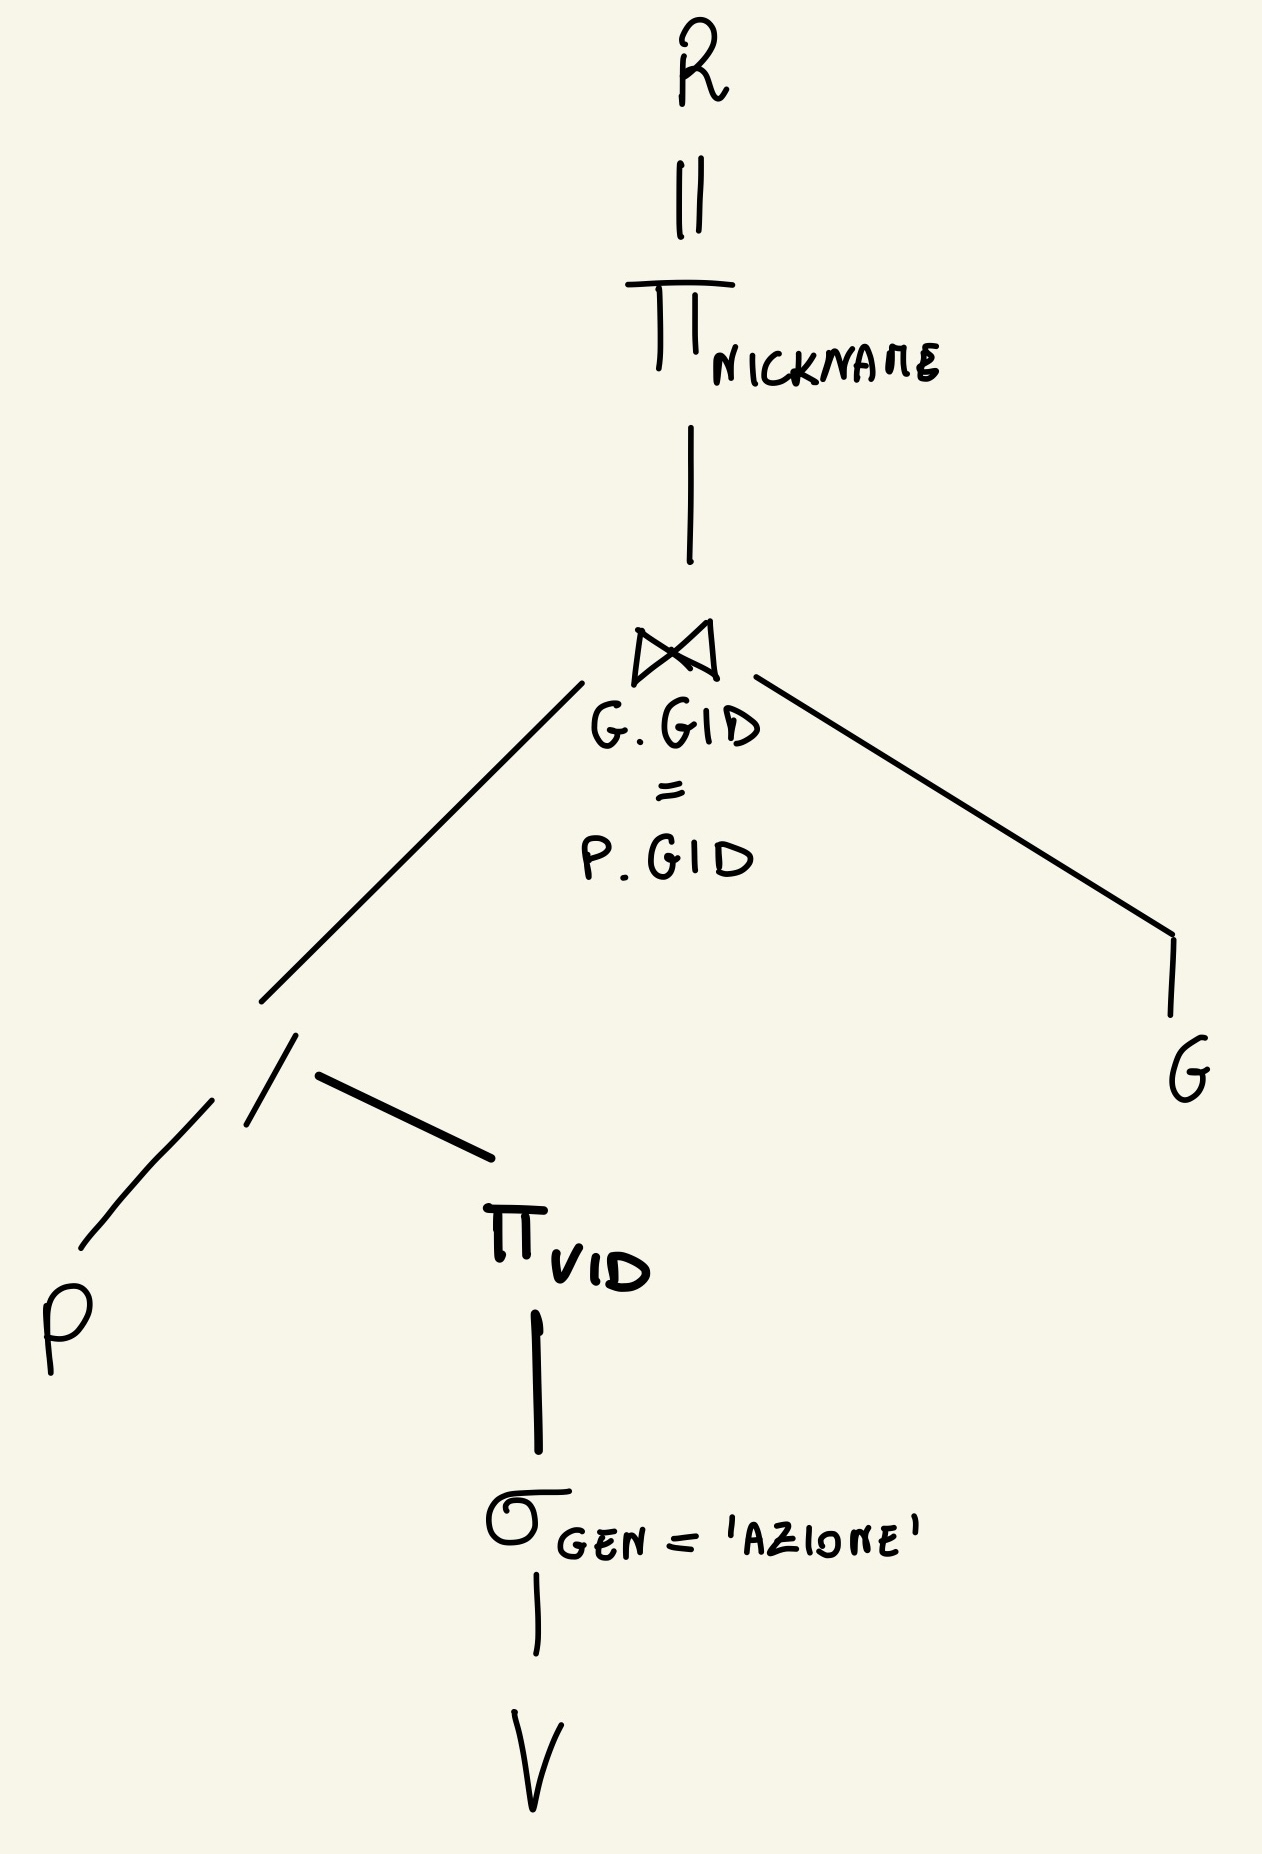 R
||
Π NICKNAME
⋈
G.GID
=
P.GID
/
G
Π VID
P
σ GEN = 'AZIONE'
V